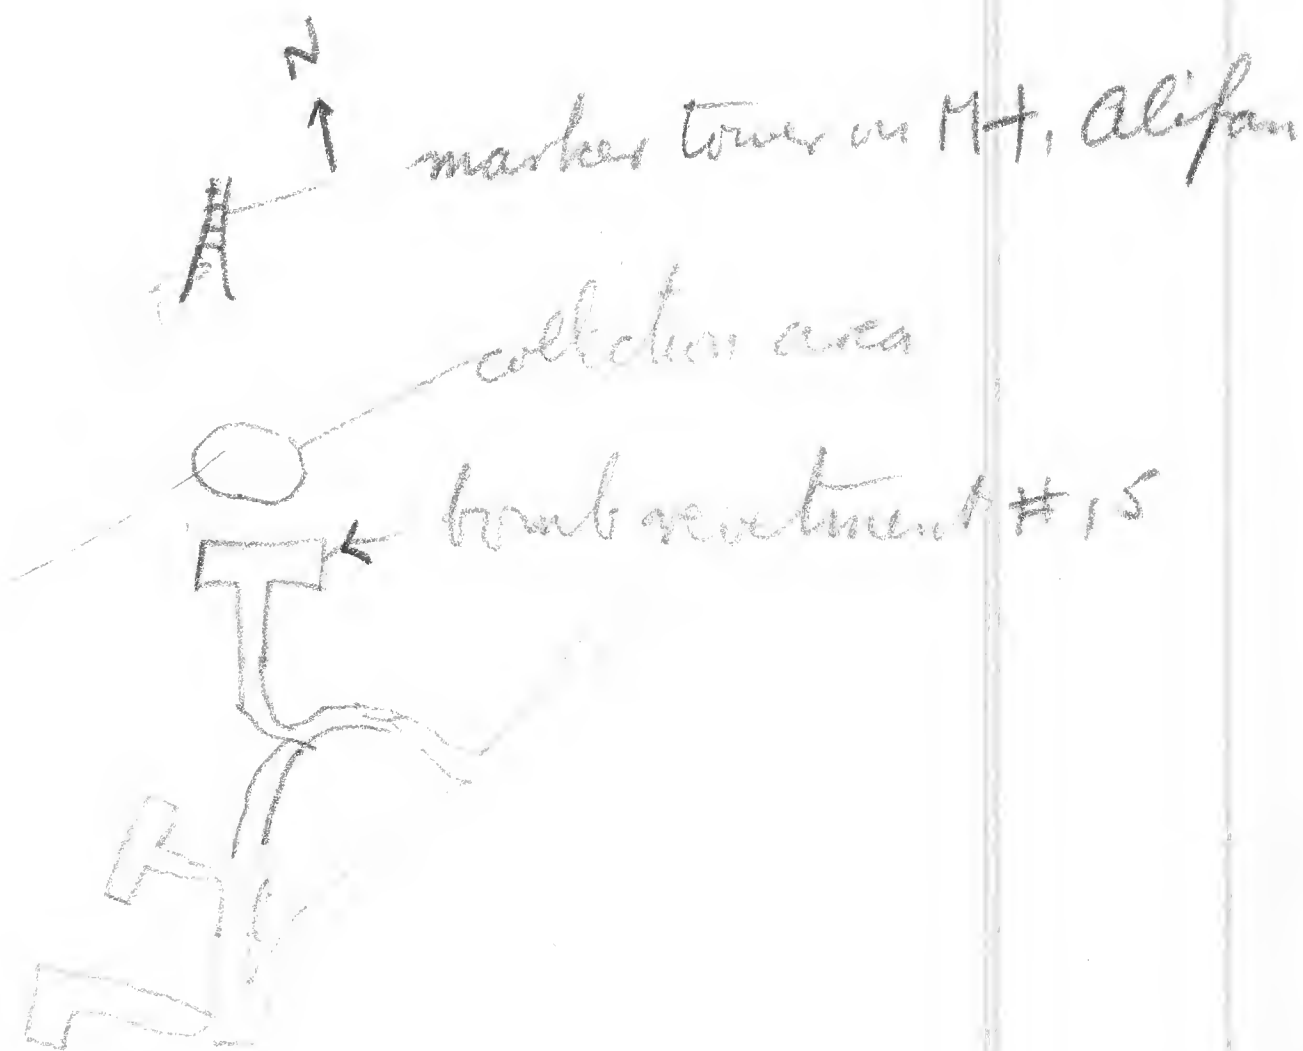 N
marker tower on Mt. Alifan
collection area
bomb revetment #15